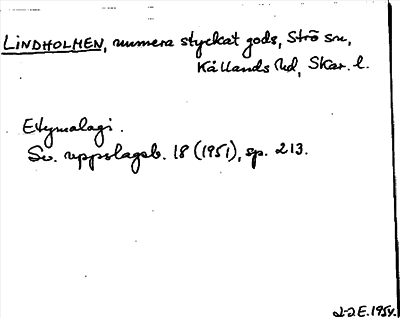 LINDHOLMEN, numera styckat gods, Strö sn,
Kållands hd, Skar. l.
Etymologi.
Sv. uppslagsb. 18 (1951), sp. 213.
J-Z E. 1954.